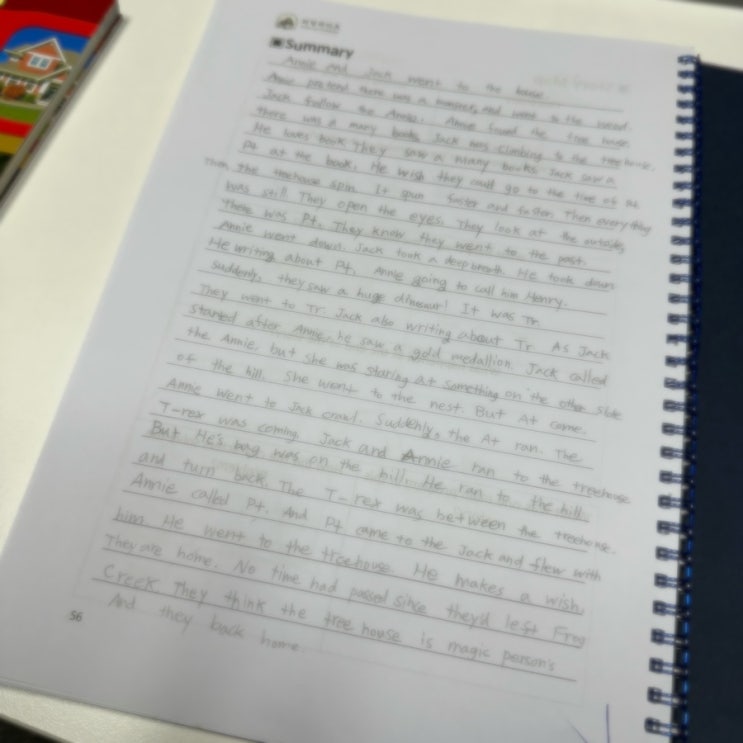 Summary
Annie and Jack went to the house
Annie pretend there was a monster, and went to the wood.
Jack follow the Annie. Annie found the tree house.
there was a many books Jack was climbing to the treehouse.
He loves book They saw a many books. Jack saw a
Pt at the book. He wish they could go to the time of
Then the treehouse spin. It spun faster and faster. Then everything
was still They open the eyes. They look at the outside,
There was Pt. They know they went to the past.
Annie went down. Jack took a deep breath. He took down
He writing about Pt. Annie going to call him Henry.
suddenly, they saw a huge dinosaur! It was Tr.
They went to Tr. Jack also writing about Tr. As Jack
started after Annie, he saw a gold medallion. Jack called
the Annie, but she was staring at something on the other side
of the hill. She went to the nest. But At came.
Annie went to Jack crawl. Suddenly, the At ran. The
T-rex was coming. Jack and Annie ran to the treehouse
But He's bag was on the hill. He ran to the hill.
and turn back. The T-rex was between the treehouse.
Annie called Pt. And Pt came to the Jack and flew with
him. He went to the treehouse. He makes a wish,
They are home. No time had passed since they'd left Frog
Creek. They think the tree house is magic person's
And they back home.
56